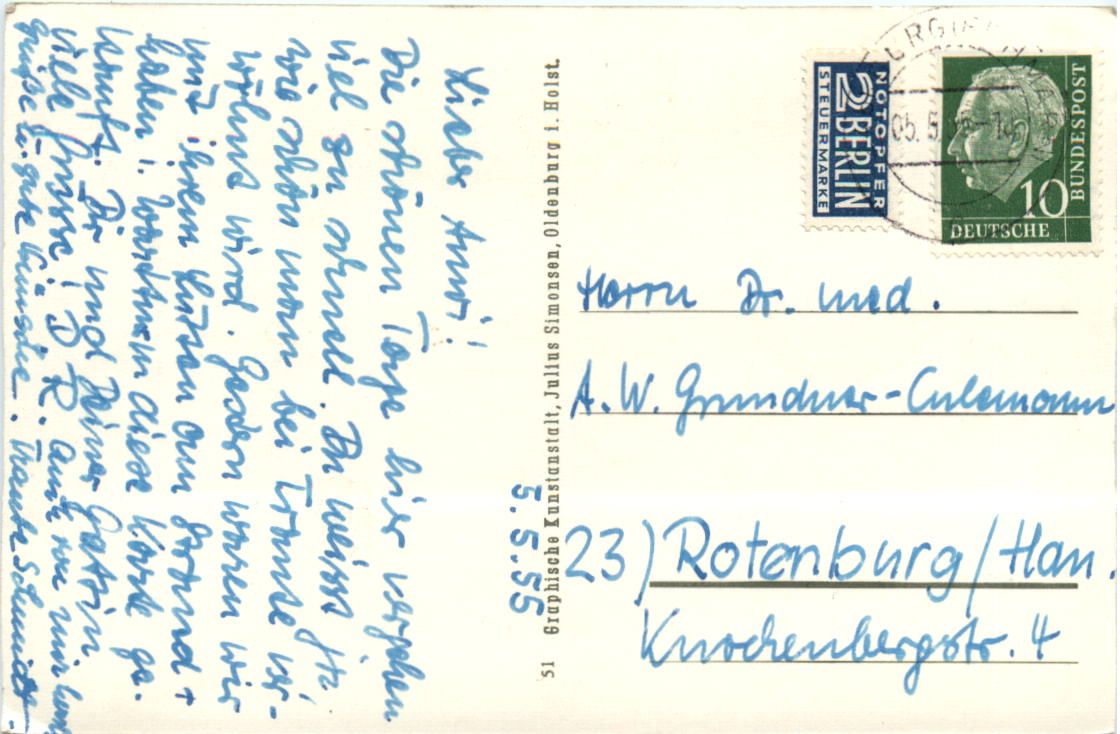 Lieber Anwi!
Die schönen Tage hier vergehen
viel zu schnell. Du weisst ja
wie schön man bei Traute ver-
wöhnt wird. Gestern waren wir
mit ihrem lütten am Strand +
haben i. Wardtnem diese Karte ge-
kauft. Dir und Deiner Gattin
viele Grüsse, D R. Auch von mir herzl.
Grüße u. gute Wünsche. Traute Schmidt
5.5.55
51 Graphische Kunstanstalt, Julius Simonsen, Oldenburg i. Holst.
NOTOPFER
2 BERLIN
STEUERMARKE
05.5.
10
DEUTSCHE
BUNDESPOST
Herrn Dr. med.
A. W. Grundner-Culemann
23) Rotenburg/Han.
Knochenbergstr. 4